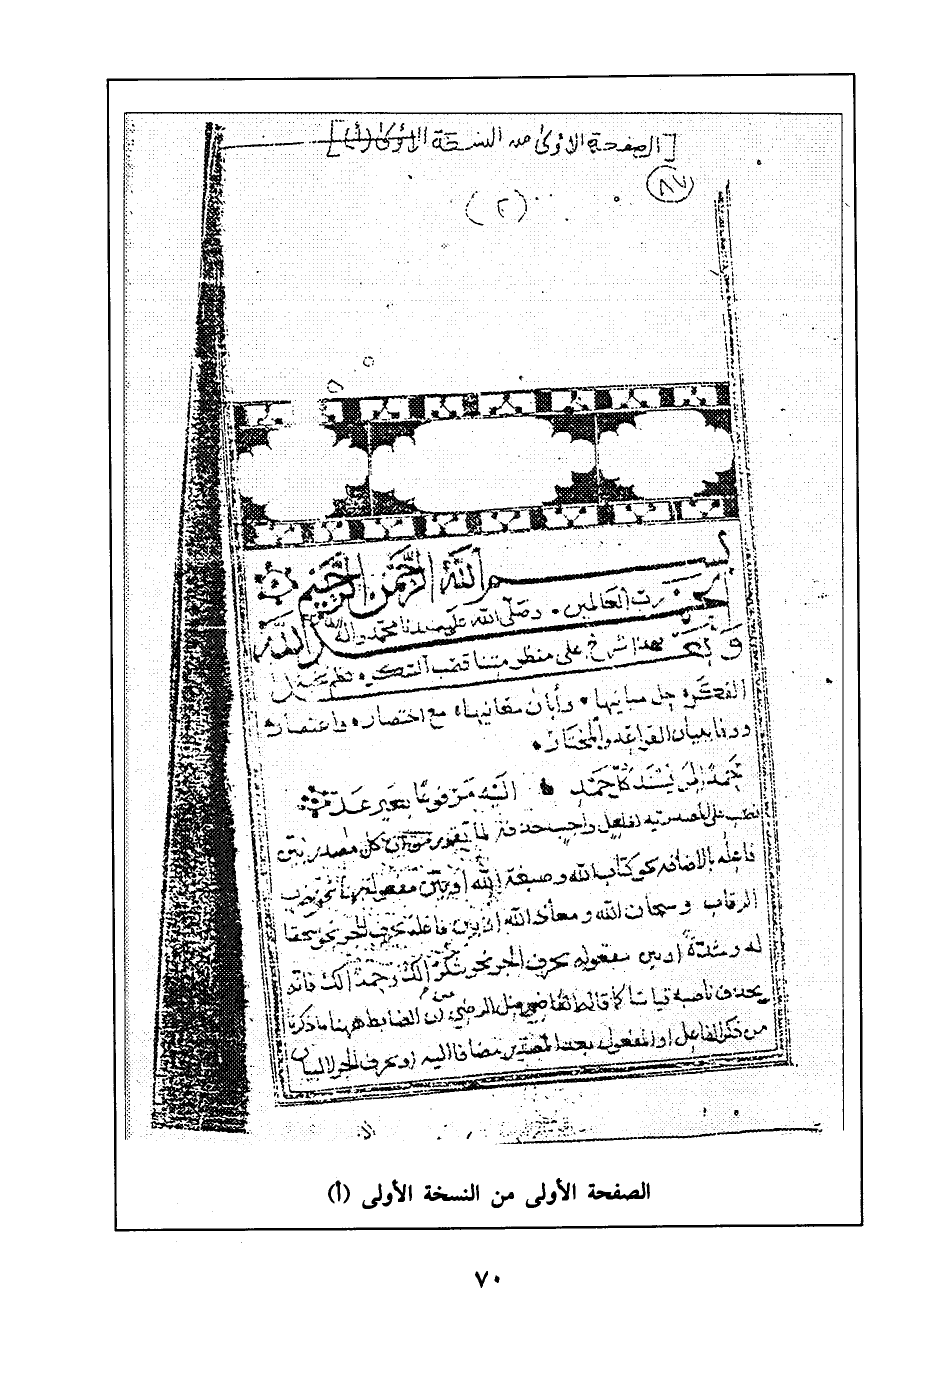 [الصفحة الأولى من النسخة الأولى (أ)]
٨٧
(٢)
بسم الله الرحمن الرحيم
الحمد لله رب العالمين وصلى الله على سيدنا محمد وآله
وبعد فهذا شرح على منظومتنا قضب السكره نظم
الفكره حل مبانيها وأبان معانيها مع اختصار واعتصار
ووفا ببيان القواعد والمختار
حمدًا لمن يسند كل حمد اليه مرفوعًا بغير عد
نصب على المصدرية لفاعل واجب حذفه لما تقرر من ان كل مصدر بين
فاعله بالاضافه نحو كتاب الله وصبغة الله او بين مفعوله بها نحو ضرب
الرقاب وسبحان الله ومعاذ الله او بين فاعله بحرف الجر نحو سحقا
له او بين مفعوله بحرف الجر نحو شكرًا لك وحمدًا لك فانه
يحذف ناصبه قياسًا كما قال الرضي لان الضابط ههنا ما ذكرنا
من ذكر الفاعل او المفعول بعد المصدر مضافا اليه او بحرف الجر لا لبيان
الصفحة الأولى من النسخة الأولى (أ)
٧٠